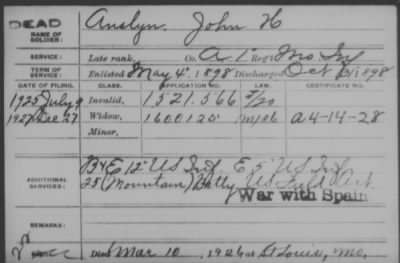 DEAD
NAME OF SOLDIER: Anslyn. John H
SERVICE: Late rank, Co. A 1" Reg't Mo. Inf
TERM OF SERVICE: Enlisted May 4" 1898 Discharged Oct 31 1898
DATE OF FILING. CLASS. APPLICATION NO. LAW. CERTIFICATE NO.
1925 July 9 Invalid, 1,521,566
1927 Dec. 27 Widow, 1600120 a4-14-28
Minor,
ADDITIONAL SERVICES: B & E 12" US Inf, E 5" US Inf
25 (Mountain) Batty US Field Art.
War with Spain
REMARKS:
Died Mar 10, 1926 at St Louis, Mo.